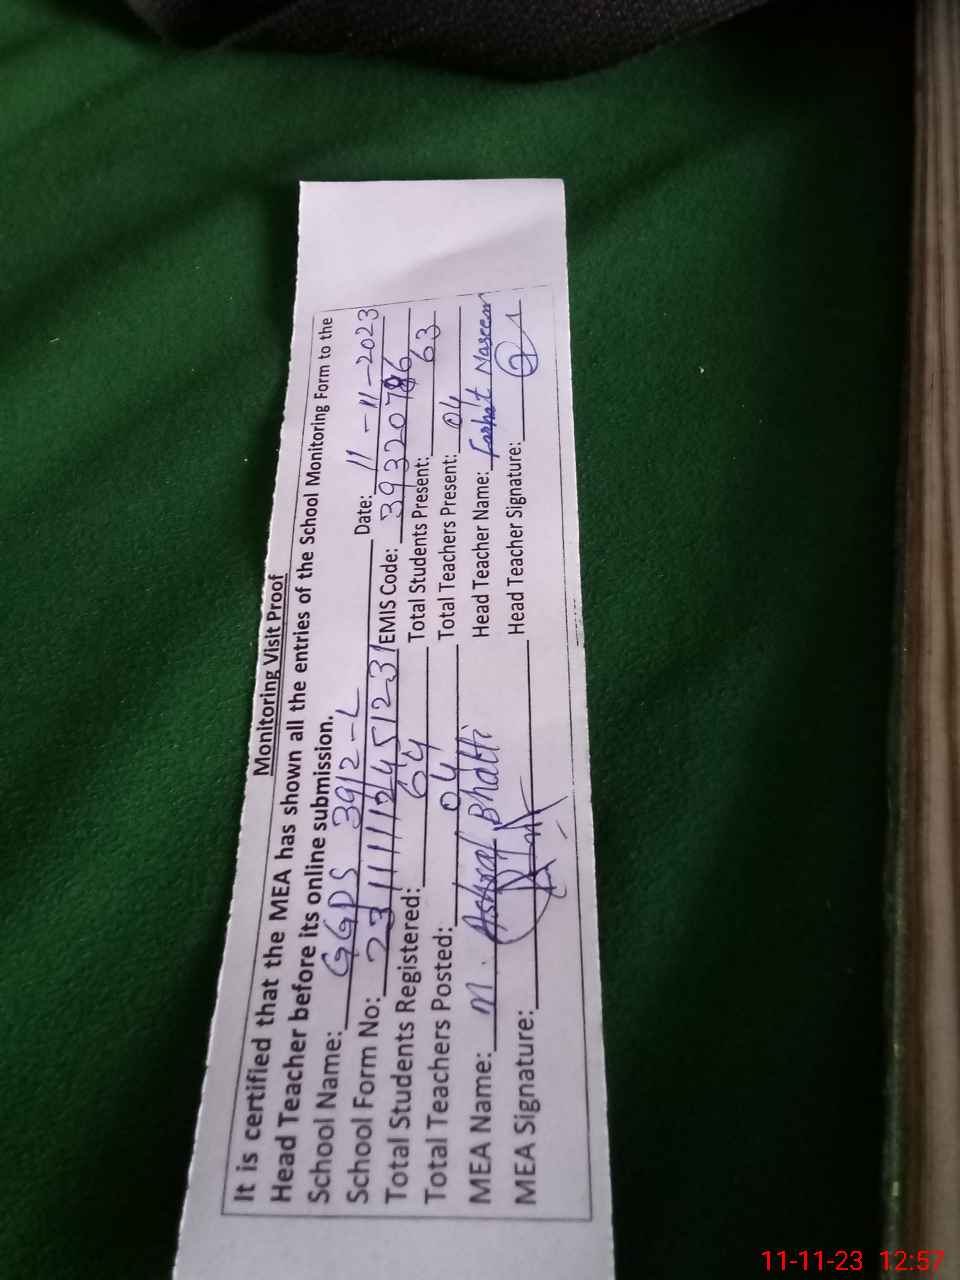 Monitoring Visit Proof
It is certified that the MEA has shown all the entries of the School Monitoring Form to the
Head Teacher before its online submission.
School Name: GGPS 39/2-L Date: 11-11-2023
School Form No: EMIS Code:
Total Students Registered: 64 Total Students Present: 63
Total Teachers Posted: 04 Total Teachers Present: 04
MEA Name: M. Ashraf Bhatti Head Teacher Name: Farhat Naseem
MEA Signature: Head Teacher Signature:
11-11-23 12:57